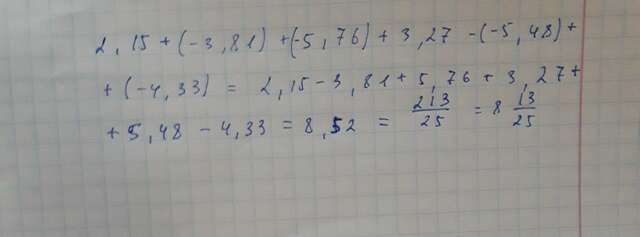 2,15 + (-3,81) + (-5,76) + 3,27 - (-5,48) +
+ (-4,33) = 2,15 - 3,81 + 5,76 + 3,27 +
+ 5,48 - 4,33 = 8,52 = 213/25 = 8 13/25